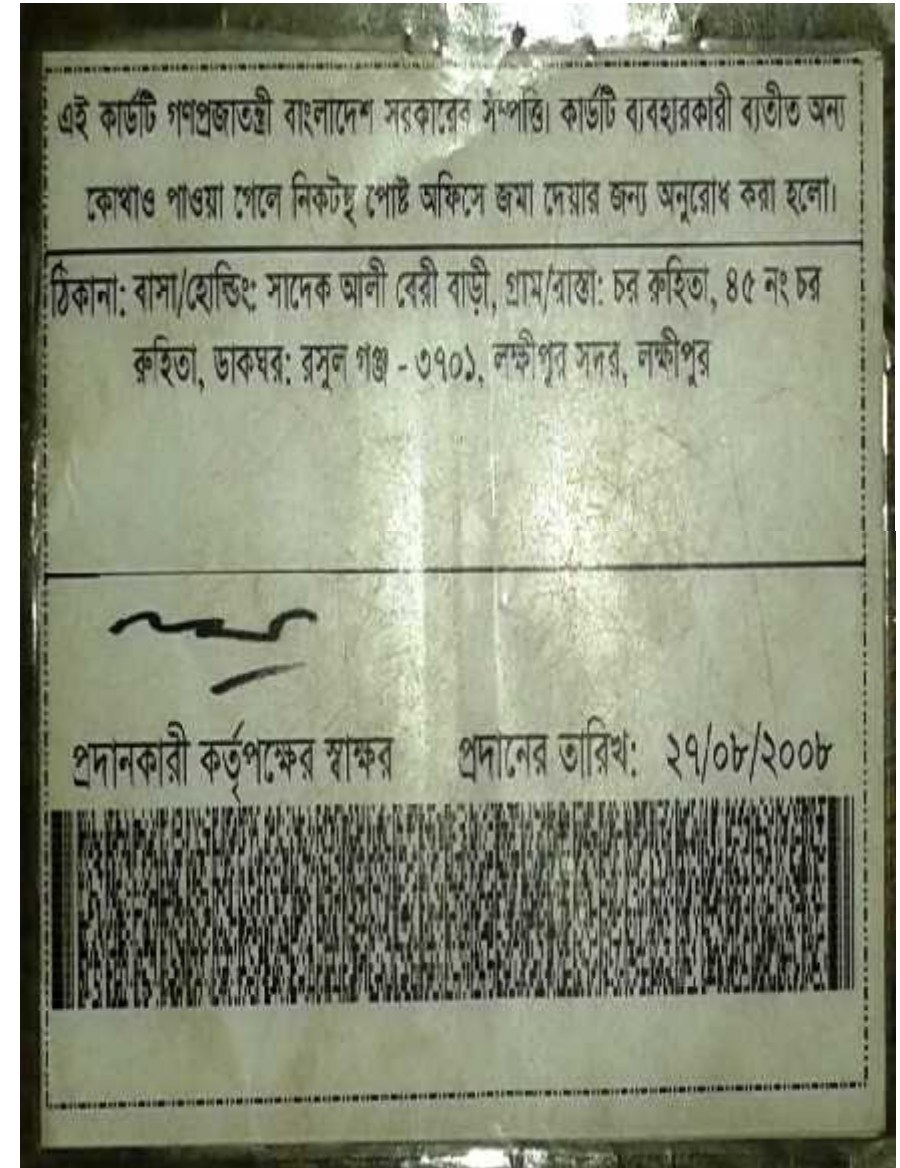 এই কার্ডটি গণপ্রজাতন্ত্রী বাংলাদেশ সরকারের সম্পত্তি। কার্ডটি ব্যবহারকারী ব্যতীত অন্য
কোথাও পাওয়া গেলে নিকটস্থ পোষ্ট অফিসে জমা দেয়ার জন্য অনুরোধ করা হলো।
ঠিকানা: বাসা/হোল্ডিং: সাদেক আলী বেরী বাড়ী, গ্রাম/রাস্তা: চর রুহিতা, ৪৫ নং চর
রুহিতা, ডাকঘর: রসুল গঞ্জ - ৩৭০১, লক্ষীপুর সদর, লক্ষীপুর
প্রদানকারী কর্তৃপক্ষের স্বাক্ষর প্রদানের তারিখ: ২৭/০৮/২০০৮